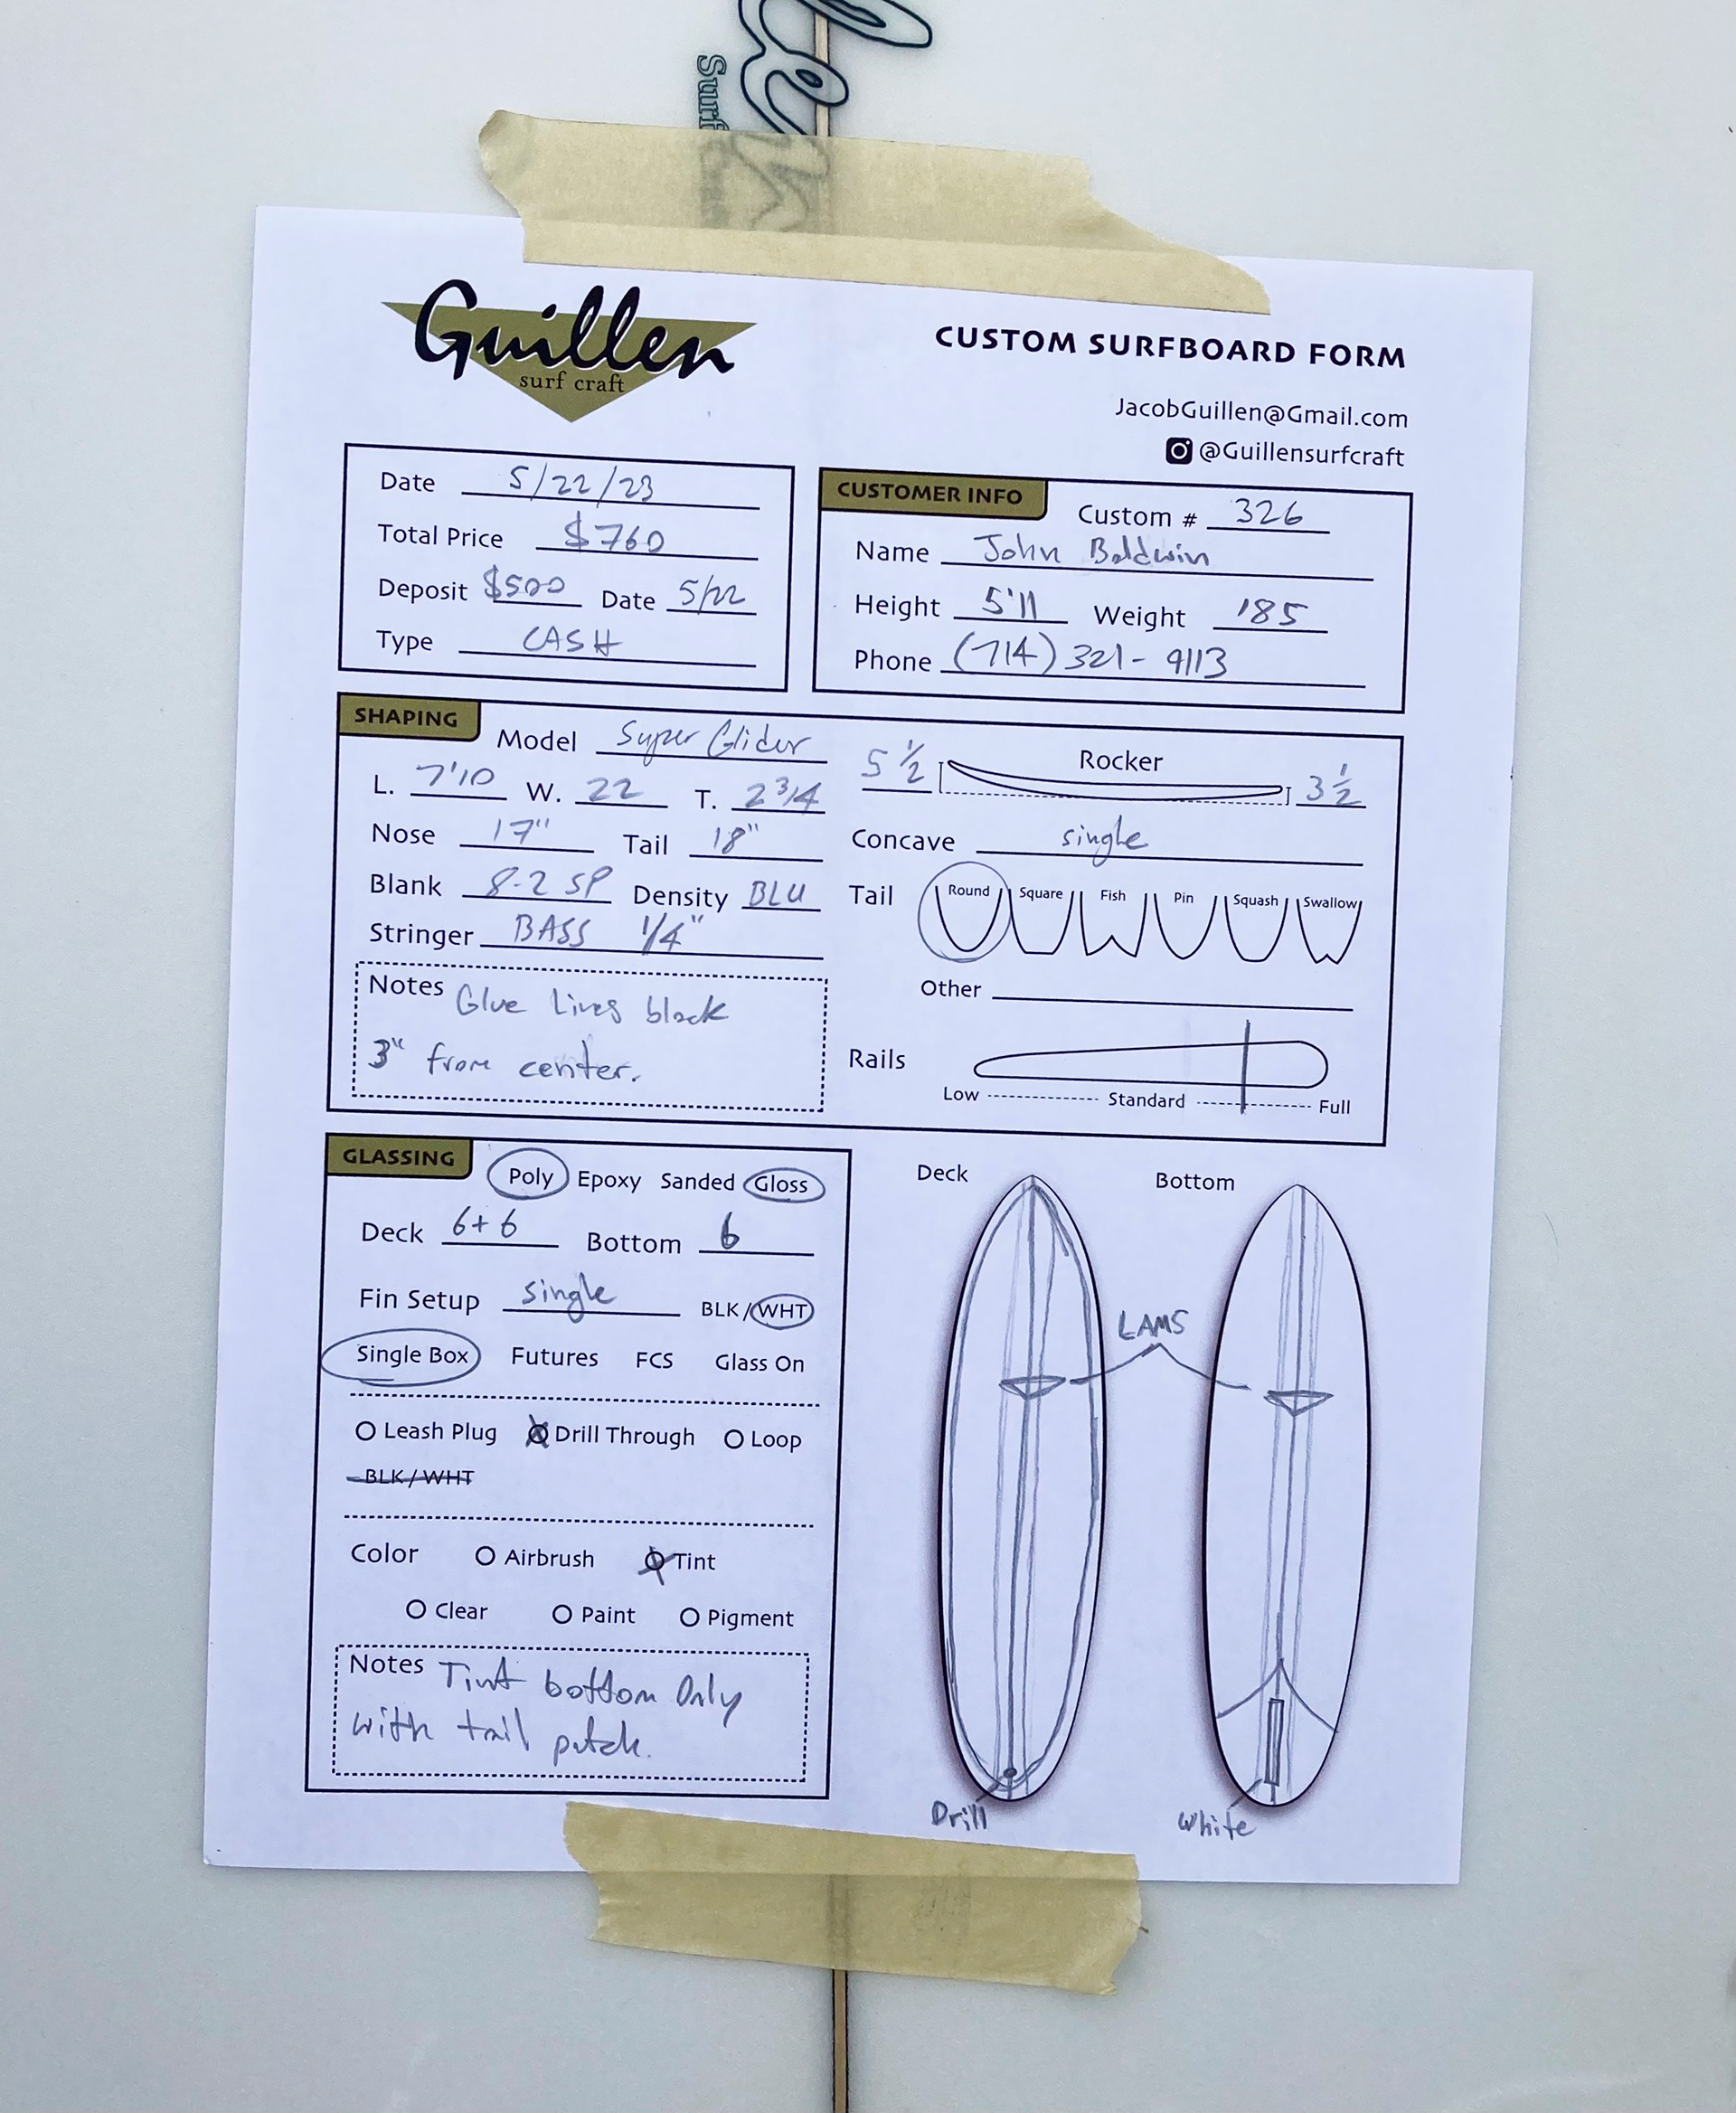 Surf
Guillen
surf craft
CUSTOM SURFBOARD FORM
JacobGuillen@Gmail.com
@Guillensurfcraft
Date 5/22/23
Total Price $760
Deposit $500 Date 5/22
Type CASH
CUSTOMER INFO
Custom # 326
Name John Baldwin
Height 5'11 Weight 185
Phone (714) 321-9113
SHAPING
Model Super Glider
L. 7'10 W. 22 T. 2 3/4
Nose 17" Tail 18"
Blank 8-2 SP Density BLU
Stringer BASS 1/4"
Notes Glue Lines black
3" from center.
5 1/2 Rocker 3 1/2
Concave single
Tail Round Square Fish Pin Squash Swallow
Other
Rails
Low Standard Full
GLASSING
Poly Epoxy Sanded Gloss
Deck 6+6 Bottom 6
Fin Setup single BLK/WHT
Single Box Futures FCS Glass On
Leash Plug Drill Through Loop
BLK/WHT
Color Airbrush Tint
Clear Paint Pigment
Notes Tint bottom Only
with tail patch.
Deck Bottom
LAMS
Drill White